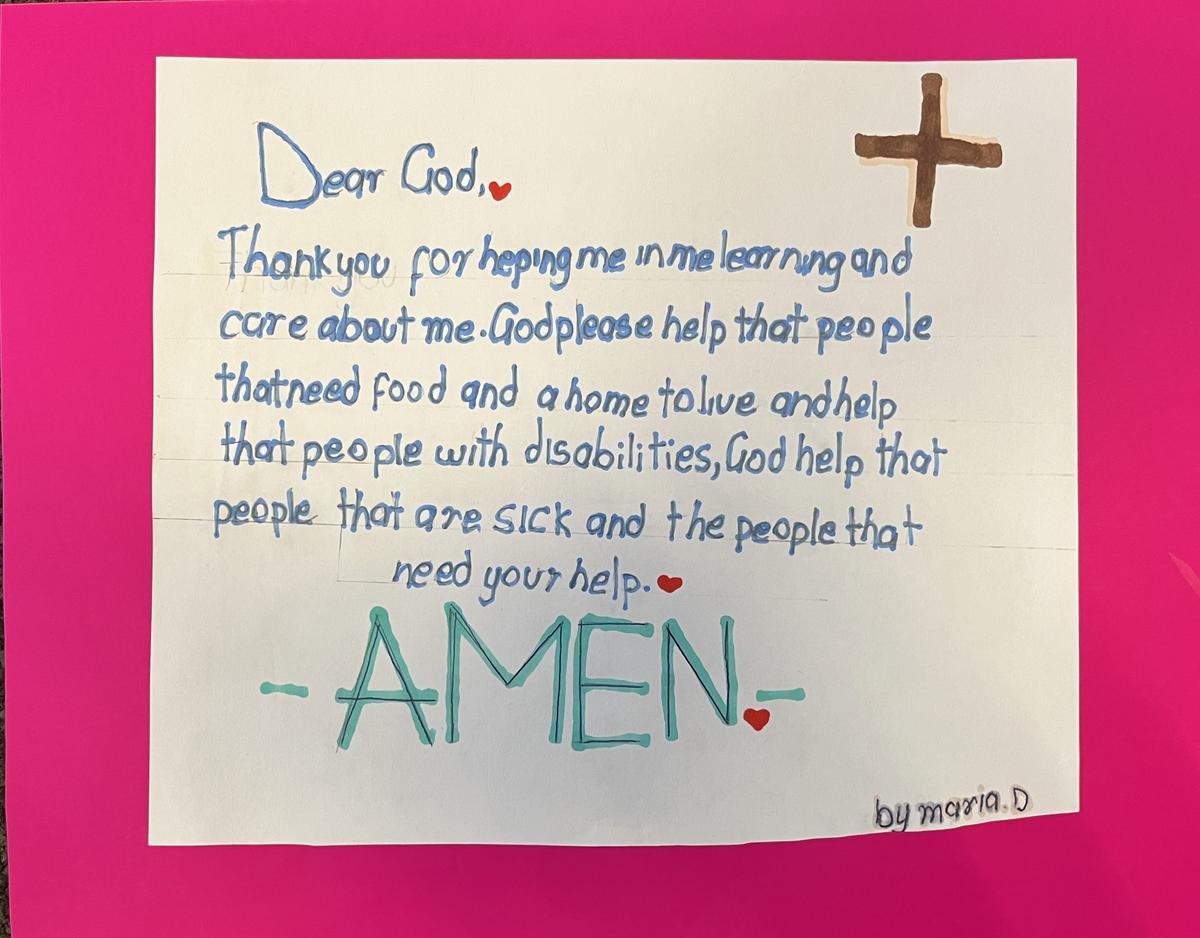 Dear God,
Thank you for heping me in me learning and
care about me. God please help that people
that need food and a home to live and help
that people with disabilities, God help that
people that are sick and the people that
need your help.
-AMEN.-
by maria. D